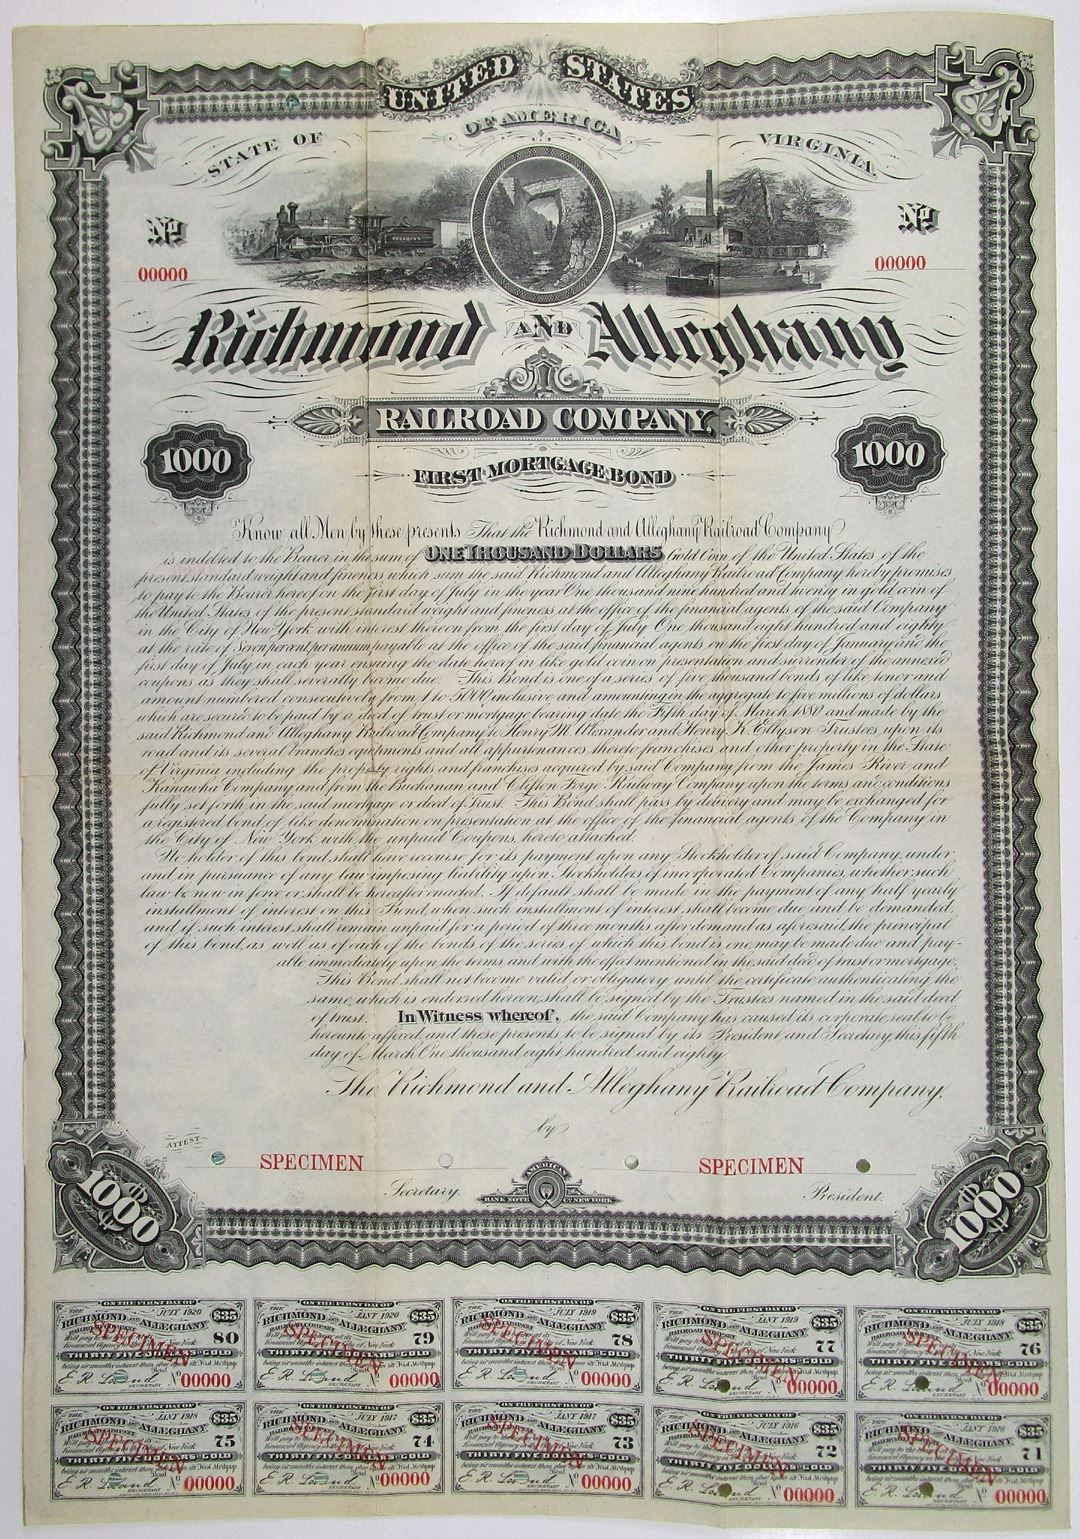 UNITED STATES
OF AMERICA
STATE OF VIRGINIA.
No No
00000 00000
Richmond AND Alleghany
RAILROAD COMPANY,
1000 1000
FIRST MORTGAGE BOND
Know all Men by these presents That the Richmond and Alleghany Railroad Company
is indebted to the Bearer in the sum of ONE THOUSAND DOLLARS Gold Coin of the United States of the
present standard weight and fineness which sum the said Richmond and Alleghany Railroad Company hereby promises
to pay to the Bearer hereof on the first day of July in the year One thousand nine hundred and twenty in gold coin of
the United States of the present standard weight and fineness at the office of the financial agents of the said Company
in the City of New York with interest thereon from the first day of July One thousand eight hundred and eighty
at the rate of Seven per cent. per annum payable at the office of the said financial agents on the first day of January and the
first day of July in each year ensuing the date hereof in like gold coin on presentation and surrender of the annexed
coupons as they shall severally become due. This Bond is one of a series of five thousand bonds of like tenor and
amount numbered consecutively from 1 to 5000 inclusive and amounting in the aggregate to five millions of dollars
which are secured to be paid by a deed of trust or mortgage bearing date the Fifth day of March 1880 and made by the
said Richmond and Alleghany Railroad Company to Henry M. Alexander and Henry K. Ellyson Trustees, upon its
road and its several branches equipments and all appurtenances thereto franchises and other property in the State
of Virginia including the property rights and franchises acquired by said Company from the James River and
Kanawha Company and from the Buchanan and Clifton Forge Railway Company upon the terms and conditions
fully set forth in the said mortgage or deed of Trust. This Bond shall pass by delivery and may be exchanged for
a registered bond of like denomination on presentation at the office of the financial agents of the Company in
the City of New York with the unpaid Coupons, hereto attached.
No holder of this bond shall have recourse for its payment upon any Stockholder of said Company, under
and in pursuance of any law imposing liability upon Stockholders of incorporated Companies, whether such
law be now in force or shall be hereafter enacted. If default shall be made in the payment of any half yearly
installment of interest on this Bond, when such installment of interest shall become due and be demanded,
and if such interest shall remain unpaid for a period of three months after demand as aforesaid, the principal
of this bond, as well as of each of the bonds of the series of which this bond is one may be made due and pay-
able immediately upon the terms and with the effect mentioned in the said deed of trust or mortgage.
This Bond shall not become valid or obligatory until the certificate authenticating the
same, which is endorsed hereon, shall be signed by the Trustees named in the said deed
of trust. In Witness whereof, the said Company has caused its corporate seal to be
hereunto affixed, and these presents to be signed by its President and Secretary, this fifth
day of March One thousand eight hundred and eighty.
The Richmond and Alleghany Railroad Company,
by
ATTEST
SPECIMEN SPECIMEN
Secretary. President.
AMERICAN
BANK NOTE Co. NEW YORK
$1000 $1000
ON THE FIRST DAY OF ON THE FIRST DAY OF ON THE FIRST DAY OF ON THE FIRST DAY OF ON THE FIRST DAY OF
THE JULY 1920 $35 THE JANY 1920 $35 THE JULY 1919 $35 THE JANY 1919 $35 THE JULY 1918 $35
RICHMOND AND ALLEGHANY RICHMOND AND ALLEGHANY RICHMOND AND ALLEGHANY RICHMOND AND ALLEGHANY RICHMOND AND ALLEGHANY
80 79 78 77 76
SPECIMEN SPECIMEN SPECIMEN SPECIMEN SPECIMEN
THIRTY FIVE DOLLARS GOLD THIRTY FIVE DOLLARS GOLD THIRTY FIVE DOLLARS GOLD THIRTY FIVE DOLLARS GOLD THIRTY FIVE DOLLARS GOLD
No 00000 No 00000 No 00000 No 00000 No 00000
SECRETARY SECRETARY SECRETARY SECRETARY SECRETARY
ON THE FIRST DAY OF ON THE FIRST DAY OF ON THE FIRST DAY OF ON THE FIRST DAY OF ON THE FIRST DAY OF
THE JANY 1918 $35 THE JULY 1917 $35 THE JANY 1917 $35 THE JULY 1916 $35 THE JANY 1916 $35
RICHMOND AND ALLEGHANY RICHMOND AND ALLEGHANY RICHMOND AND ALLEGHANY RICHMOND AND ALLEGHANY RICHMOND AND ALLEGHANY
75 74 73 72 71
SPECIMEN SPECIMEN SPECIMEN SPECIMEN SPECIMEN
THIRTY FIVE DOLLARS GOLD THIRTY FIVE DOLLARS GOLD THIRTY FIVE DOLLARS GOLD THIRTY FIVE DOLLARS GOLD THIRTY FIVE DOLLARS GOLD
No 00000 No 00000 No 00000 No 00000 No 00000
SECRETARY SECRETARY SECRETARY SECRETARY SECRETARY